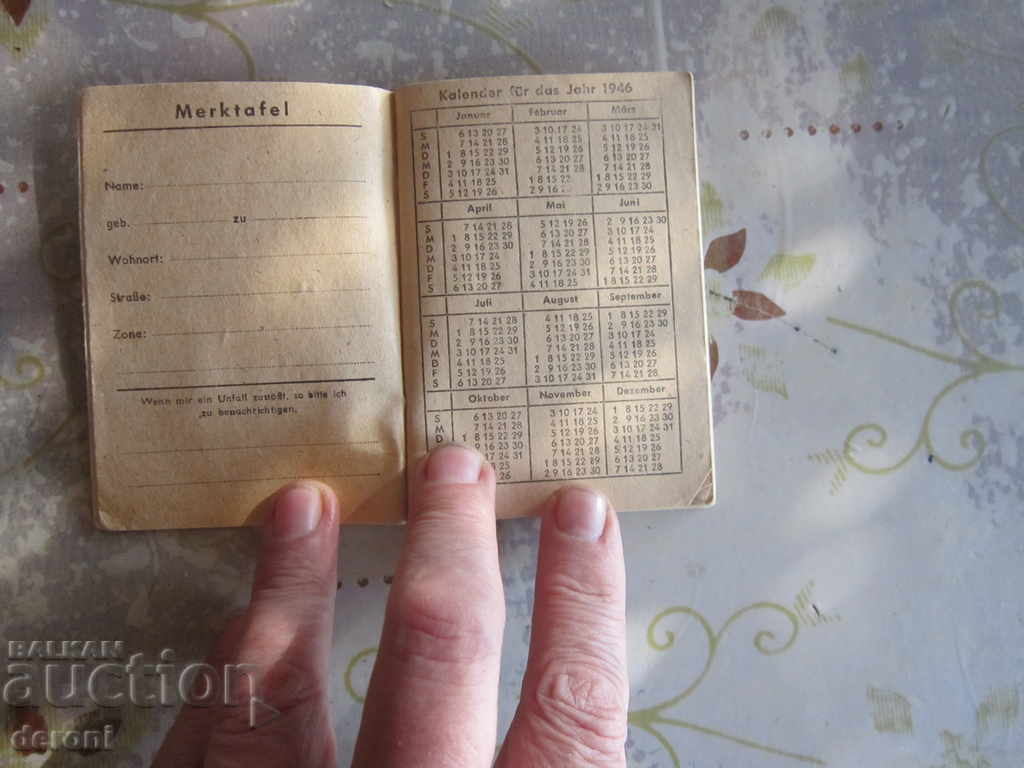 Merktafel
Name:
geb. zu
Wohnort:
Straße:
Zone:
Wenn mir ein Unfall zustößt, so bitte ich
zu benachrichtigen.
Kalender für das Jahr 1946
Januar Februar März
S 6 13 20 27 3 10 17 24 3 10 17 24 31
M 7 14 21 28 4 11 18 25 4 11 18 25
D 1 8 15 22 29 5 12 19 26 5 12 19 26
M 2 9 16 23 30 6 13 20 27 6 13 20 27
D 3 10 17 24 31 7 14 21 28 7 14 21 28
F 4 11 18 25 1 8 15 22 1 8 15 22 29
S 5 12 19 26 2 9 16 23 2 9 16 23 30
April Mai Juni
S 7 14 21 28 5 12 19 26 2 9 16 23 30
M 1 8 15 22 29 6 13 20 27 3 10 17 24
D 2 9 16 23 30 7 14 21 28 4 11 18 25
M 3 10 17 24 1 8 15 22 29 5 12 19 26
D 4 11 18 25 2 9 16 23 30 6 13 20 27
F 5 12 19 26 3 10 17 24 31 7 14 21 28
S 6 13 20 27 4 11 18 25 1 8 15 22 29
Juli August September
S 7 14 21 28 4 11 18 25 1 8 15 22 29
M 1 8 15 22 29 5 12 19 26 2 9 16 23 30
D 2 9 16 23 30 6 13 20 27 3 10 17 24
M 3 10 17 24 31 7 14 21 28 4 11 18 25
D 4 11 18 25 1 8 15 22 29 5 12 19 26
F 5 12 19 26 2 9 16 23 30 6 13 20 27
S 6 13 20 27 3 10 17 24 31 7 14 21 28
Oktober November Dezember
S 6 13 20 27 3 10 17 24 1 8 15 22 29
M 7 14 21 28 4 11 18 25 2 9 16 23 30
D 1 8 15 22 29 5 12 19 26 3 10 17 24 31
9 16 23 30 6 13 20 27 4 11 18 25
10 17 24 31 7 14 21 28 5 12 19 26
18 25 1 8 15 22 29 6 13 20 27
26 2 9 16 23 30 7 14 21 28
BALKAN
auction
deroni